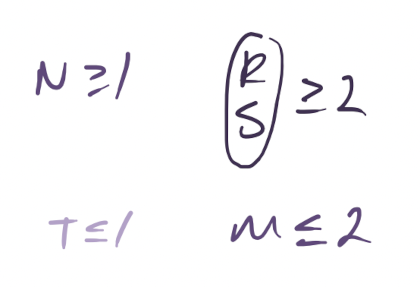 N ≥ 1
R
S ≥ 2
T ≤ 1
M ≤ 2